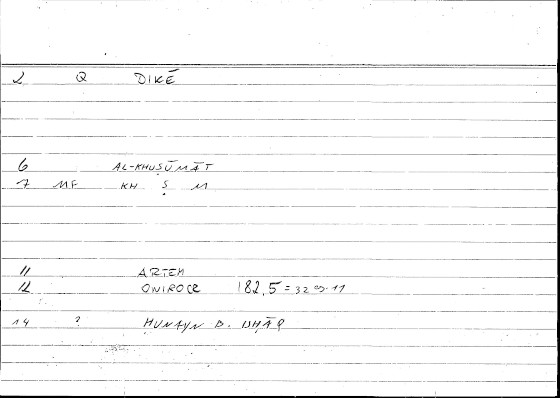 2 Q DIKĒ
6 AL-KHUṢŪMĀT
7 MF KH Ṣ M
11 ARTEM
12 ONIROCR 182,5 = 32
14 ? ḤUNAYN B. ISḤĀQ